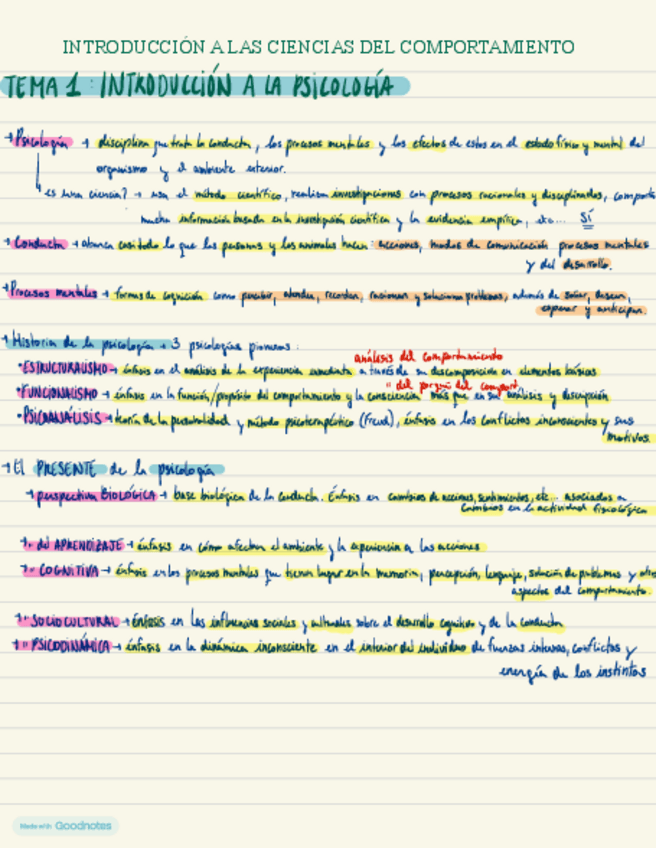 INTRODUCCIÓN A LAS CIENCIAS DEL COMPORTAMIENTO
TEMA 1: INTRODUCCIÓN A LA PSICOLOGÍA
→ Psicología → disciplina que trata la conducta, los procesos mentales y los efectos de estos en el estado físico y mental del
organismo y el ambiente exterior.
es una ciencia? → usa el método científico, realizan investigaciones con procesos racionales y disciplinados,
mucha información basada en la investigación científica y la evidencia empírica, etc... SÍ
→ Conducta → abarca casi todo lo que las personas y los animales hacen: acciones, modos de comunicación procesos mentales
y del desarrollo.
→ Procesos mentales → formas de cognición como percibir, atender, recordar, razonar y solucionar problemas, además de soñar, desear,
esperar y anticipar.
→ Historia de la psicología → 3 psicologías pioneras:
análisis del comportamiento
• ESTRUCTURALISMO → énfasis en el análisis de la experiencia inmediata a través de su descomposición en elementos básicos
" del porqué del comport.
• FUNCIONALISMO → énfasis en la función/propósito del comportamiento y la consciencia más que en su análisis y descripción
• PSICOANÁLISIS → teoría de la personalidad y método psicoterapéutico (Freud), énfasis en los conflictos inconscientes y sus
motivos.
→ El PRESENTE de la psicología
→ perspectiva BIOLÓGICA → base biológica de la conducta. Énfasis en cambios de acciones, sentimientos, etc... asociados a
cambios en la actividad fisiológica
→ " del APRENDIZAJE → énfasis en cómo afectan el ambiente y la experiencia a las acciones
→ " COGNITIVA → énfasis en los procesos mentales que tienen lugar en la memoria, percepción, lenguaje, solución de problemas y otros
aspectos del comportamiento.
→ " SOCIOCULTURAL → énfasis en las influencias sociales y culturales sobre el desarrollo cognitivo y de la conducta
→ " PSICODINÁMICA → énfasis en la dinámica inconsciente en el interior del individuo de fuerzas internas, conflictos y
energía de los instintos
Made with Goodnotes